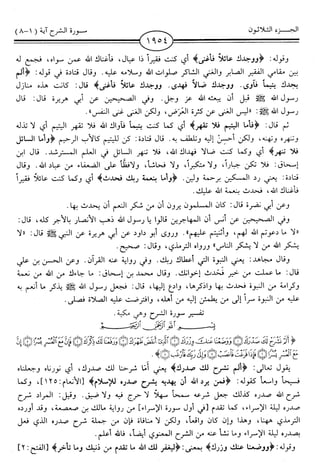 الجزء الثلاثون
١٩٥٤
سورة الشرح آية (١-٨)
وقوله: ﴿ووجدك عائلاً فأغنى﴾ أي كنت فقيراً ذا عيال، فأغناك الله عمن سواه، فجمع له
بين مقامي الفقير الصابر والغني الشاكر صلوات الله وسلامه عليه. وقال قتادة في قوله: ﴿ألم
يجدك يتيماً فآوى. ووجدك ضالاً فهدى. ووجدك عائلاً فأغنى﴾ قال: كانت هذه منازل
رسول الله ﷺ قبل أن يبعثه الله عز وجل. وفي الصحيحين عن أبي هريرة قال: قال
رسول الله ﷺ: «ليس الغنى عن كثرة العَرَض، ولكن الغنى غنى النفس».
ثم قال: ﴿فأما اليتيم فلا تقهر﴾ أي كما كنت يتيماً فآواك الله فلا تقهر اليتيم أي لا تذله
وتنهره وتهنه، ولكن أحسن إليه وتلطف به. قال قتادة: كن لليتيم كالأب الرحيم ﴿وأما السائل
فلا تنهر﴾ أي وكما كنت ضالا فهداك الله، فلا تنهر السائل في العلم المسترشد. قال ابن
إسحاق: فلا تكن جباراً، ولا متكبراً، ولا فحاشاً، ولا فظّاً على الضعفاء من عباد الله. وقال
قتادة: يعني رد المسكين برحمة ولين. ﴿وأما بنعمة ربك فحدث﴾ أي وكما كنت عائلاً فقيراً
فأغناك الله، فحدث بنعمة الله عليك.
وعن أبي نضرة قال: كان المسلمون يرون أن من شكر النعم أن يحدث بها.
وفي الصحيحين عن أنس أن المهاجرين قالوا يا رسول الله ذهب الأنصار بالأجر كله، قال:
«لا ما دعوتم الله لهم، وأثنيتم عليهم». وروى أبو داود عن أبي هريرة عن النبي ﷺ قال: «لا
يشكر الله من لا يشكر الناس» ورواه الترمذي، وقال: صحيح.
وقال مجاهد: يعني النبوة التي أعطاك ربك. وفي رواية عنه القرآن. وعن الحسن بن علي
قال: ما عملت من خير فحدث إخوانك. وقال محمد بن إسحاق: ما جاءك من الله من نعمة
وكرامة من النبوة فحدث بها واذكرها، وادع إليها، قال: فجعل رسول الله ﷺ يذكر ما أنعم به
عليه من النبوة سراً إلى من يطمئن إليه من أهله، وافترضت عليه الصلاة فصلى.
تفسير سورة الشرح وهي مكية.
﴿أَلَمْ نَشْرَحْ لَكَ صَدْرَكَ ۝ وَوَضَعْنَا عَنكَ وِزْرَكَ ۝ الَّذِي أَنقَضَ ظَهْرَكَ ۝ وَرَفَعْنَا لَكَ ذِكْرَكَ ۝ فَإِنَّ مَعَ
الْعُسْرِ يُسْرًا ۝ إِنَّ مَعَ الْعُسْرِ يُسْرًا ۝ فَإِذَا فَرَغْتَ فَانصَبْ ۝ وَإِلَىٰ رَبِّكَ فَارْغَب ۝﴾
يقول تعالى: ﴿ألم نشرح لك صدرك﴾ يعني أمَّا شرحنا لك صدرك، أي نورناه وجعلناه
فسيحاً واسعاً كقوله: ﴿فمن يرد الله أن يهديه يشرح صدره للإسلام﴾ [الأنعام: ١٢٥]، وكما
شرح الله صدره كذلك جعل شرعه سمحاً سهلاً لا حرج فيه ولا ضيق. وقيل: المراد شرح
صدره ليلة الإسراء، كما تقدم [في أول سورة الإسراء] من رواية مالك بن صعصعة، وقد أورده
الترمذي ههنا، وهذا وإن كان واقعاً، ولكن لا منافاة فإن من جملة شرح صدره الذي فعل
بصدره ليلة الإسراء وما نشأ عنه من الشرح المعنوي أيضاً، فالله أعلم.
وقوله: ﴿ووضعنا عنك وزرك﴾ بمعنى: ﴿ليغفر لك الله ما تقدم من ذنبك وما تأخر﴾ [الفتح: ٢]